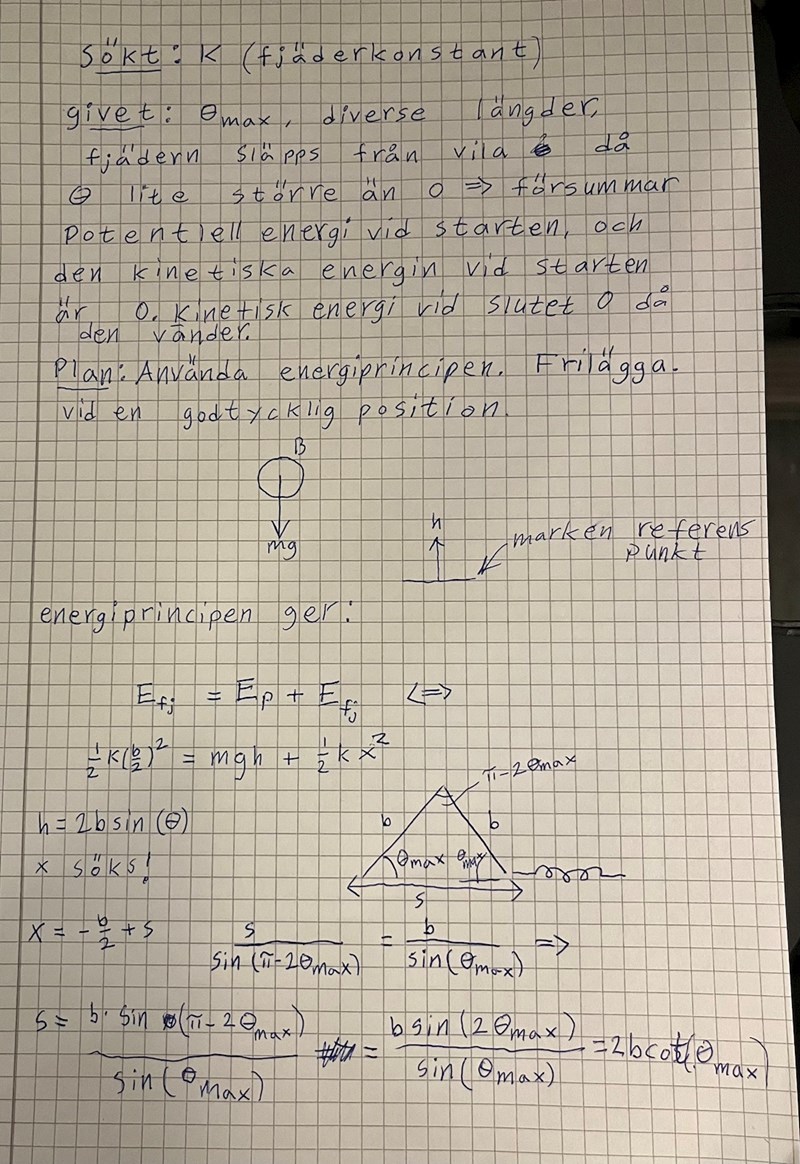 Sökt: K (fjäderkonstant)
givet: θmax, diverse längder,
fjädern släpps från vila då
θ lite större än 0 => försummar
potentiell energi vid starten, och
den kinetiska energin vid starten
är 0. Kinetisk energi vid slutet 0 då
den vänder.
Plan: Använda energiprincipen. Frilägga.
vid en godtycklig position.
B
mg
h
marken referens
punkt
energiprincipen ger:
E_fj = E_p + E_fj <=>
1/2 K(b/2)² = mgh + 1/2 k x²
π-2θmax
h = 2b sin(θ)
b b
x söks!
θmax θmax
s
x = -b/2 + s
s/sin(π-2θmax) = b/sin(θmax) =>
s = b·sin(π-2θmax)/sin(θmax) = b sin(2θmax)/sin(θmax) = 2bcot(θmax)